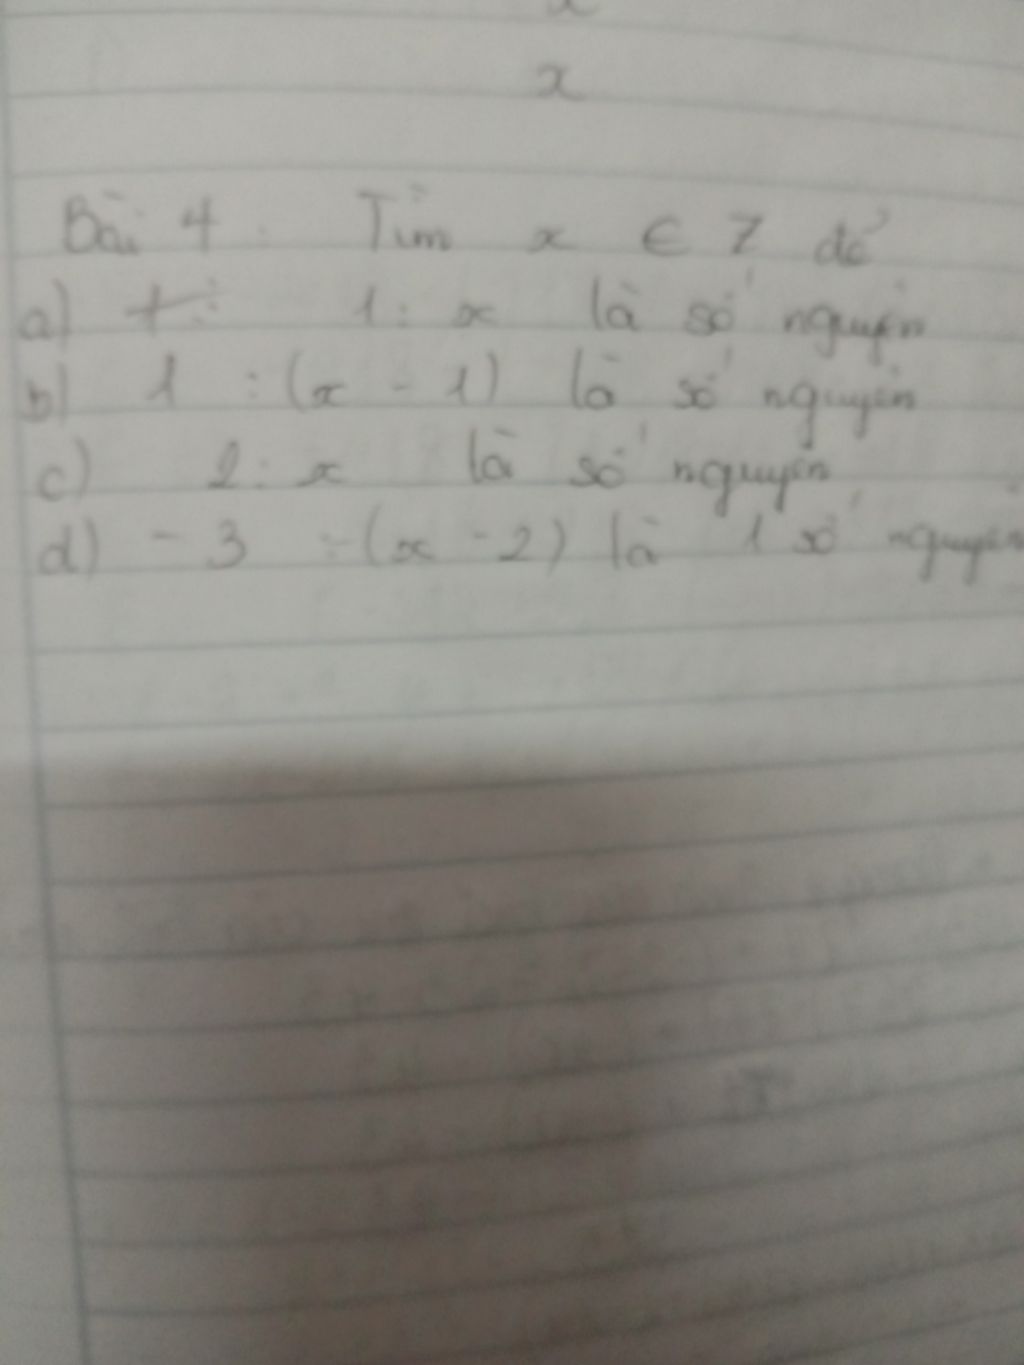 x
Bài 4. Tìm x ∈ Z để
a) 1 : x là số nguyên
b) 1 : (x - 1) là số nguyên
c) 2 : x là số nguyên
d) - 3 : (x - 2) là 1 số nguyên